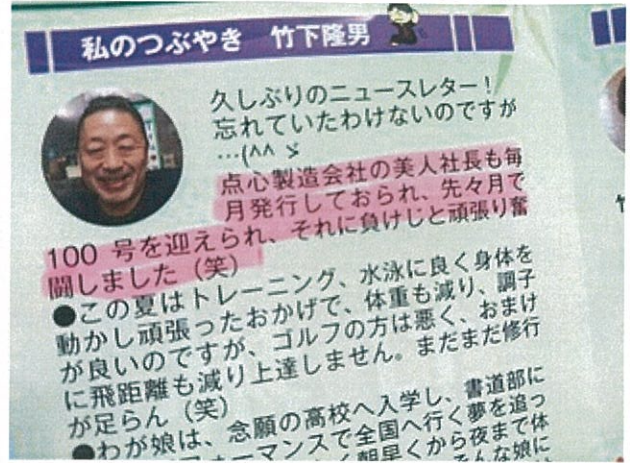 私のつぶやき　竹下隆男
久しぶりのニュースレター！
忘れていたわけないのですが
…(^^ゞ
点心製造会社の美人社長も毎
月発行しておられ、先々月で
100 号を迎えられ、それに負けじと頑張り奮
闘しました（笑）
●この夏はトレーニング、水泳に良く身体を
動かし頑張ったおかげで、体重も減り、調子
が良いのですが、ゴルフの方は悪く、おまけ
に飛距離も減り上達しません。まだまだ修行
が足らん（笑）
●わが娘は、念願の高校へ入学し、書道部に
フォーマンスで全国へ行く夢を追っ
朝早くから夜まで体
そんな娘に